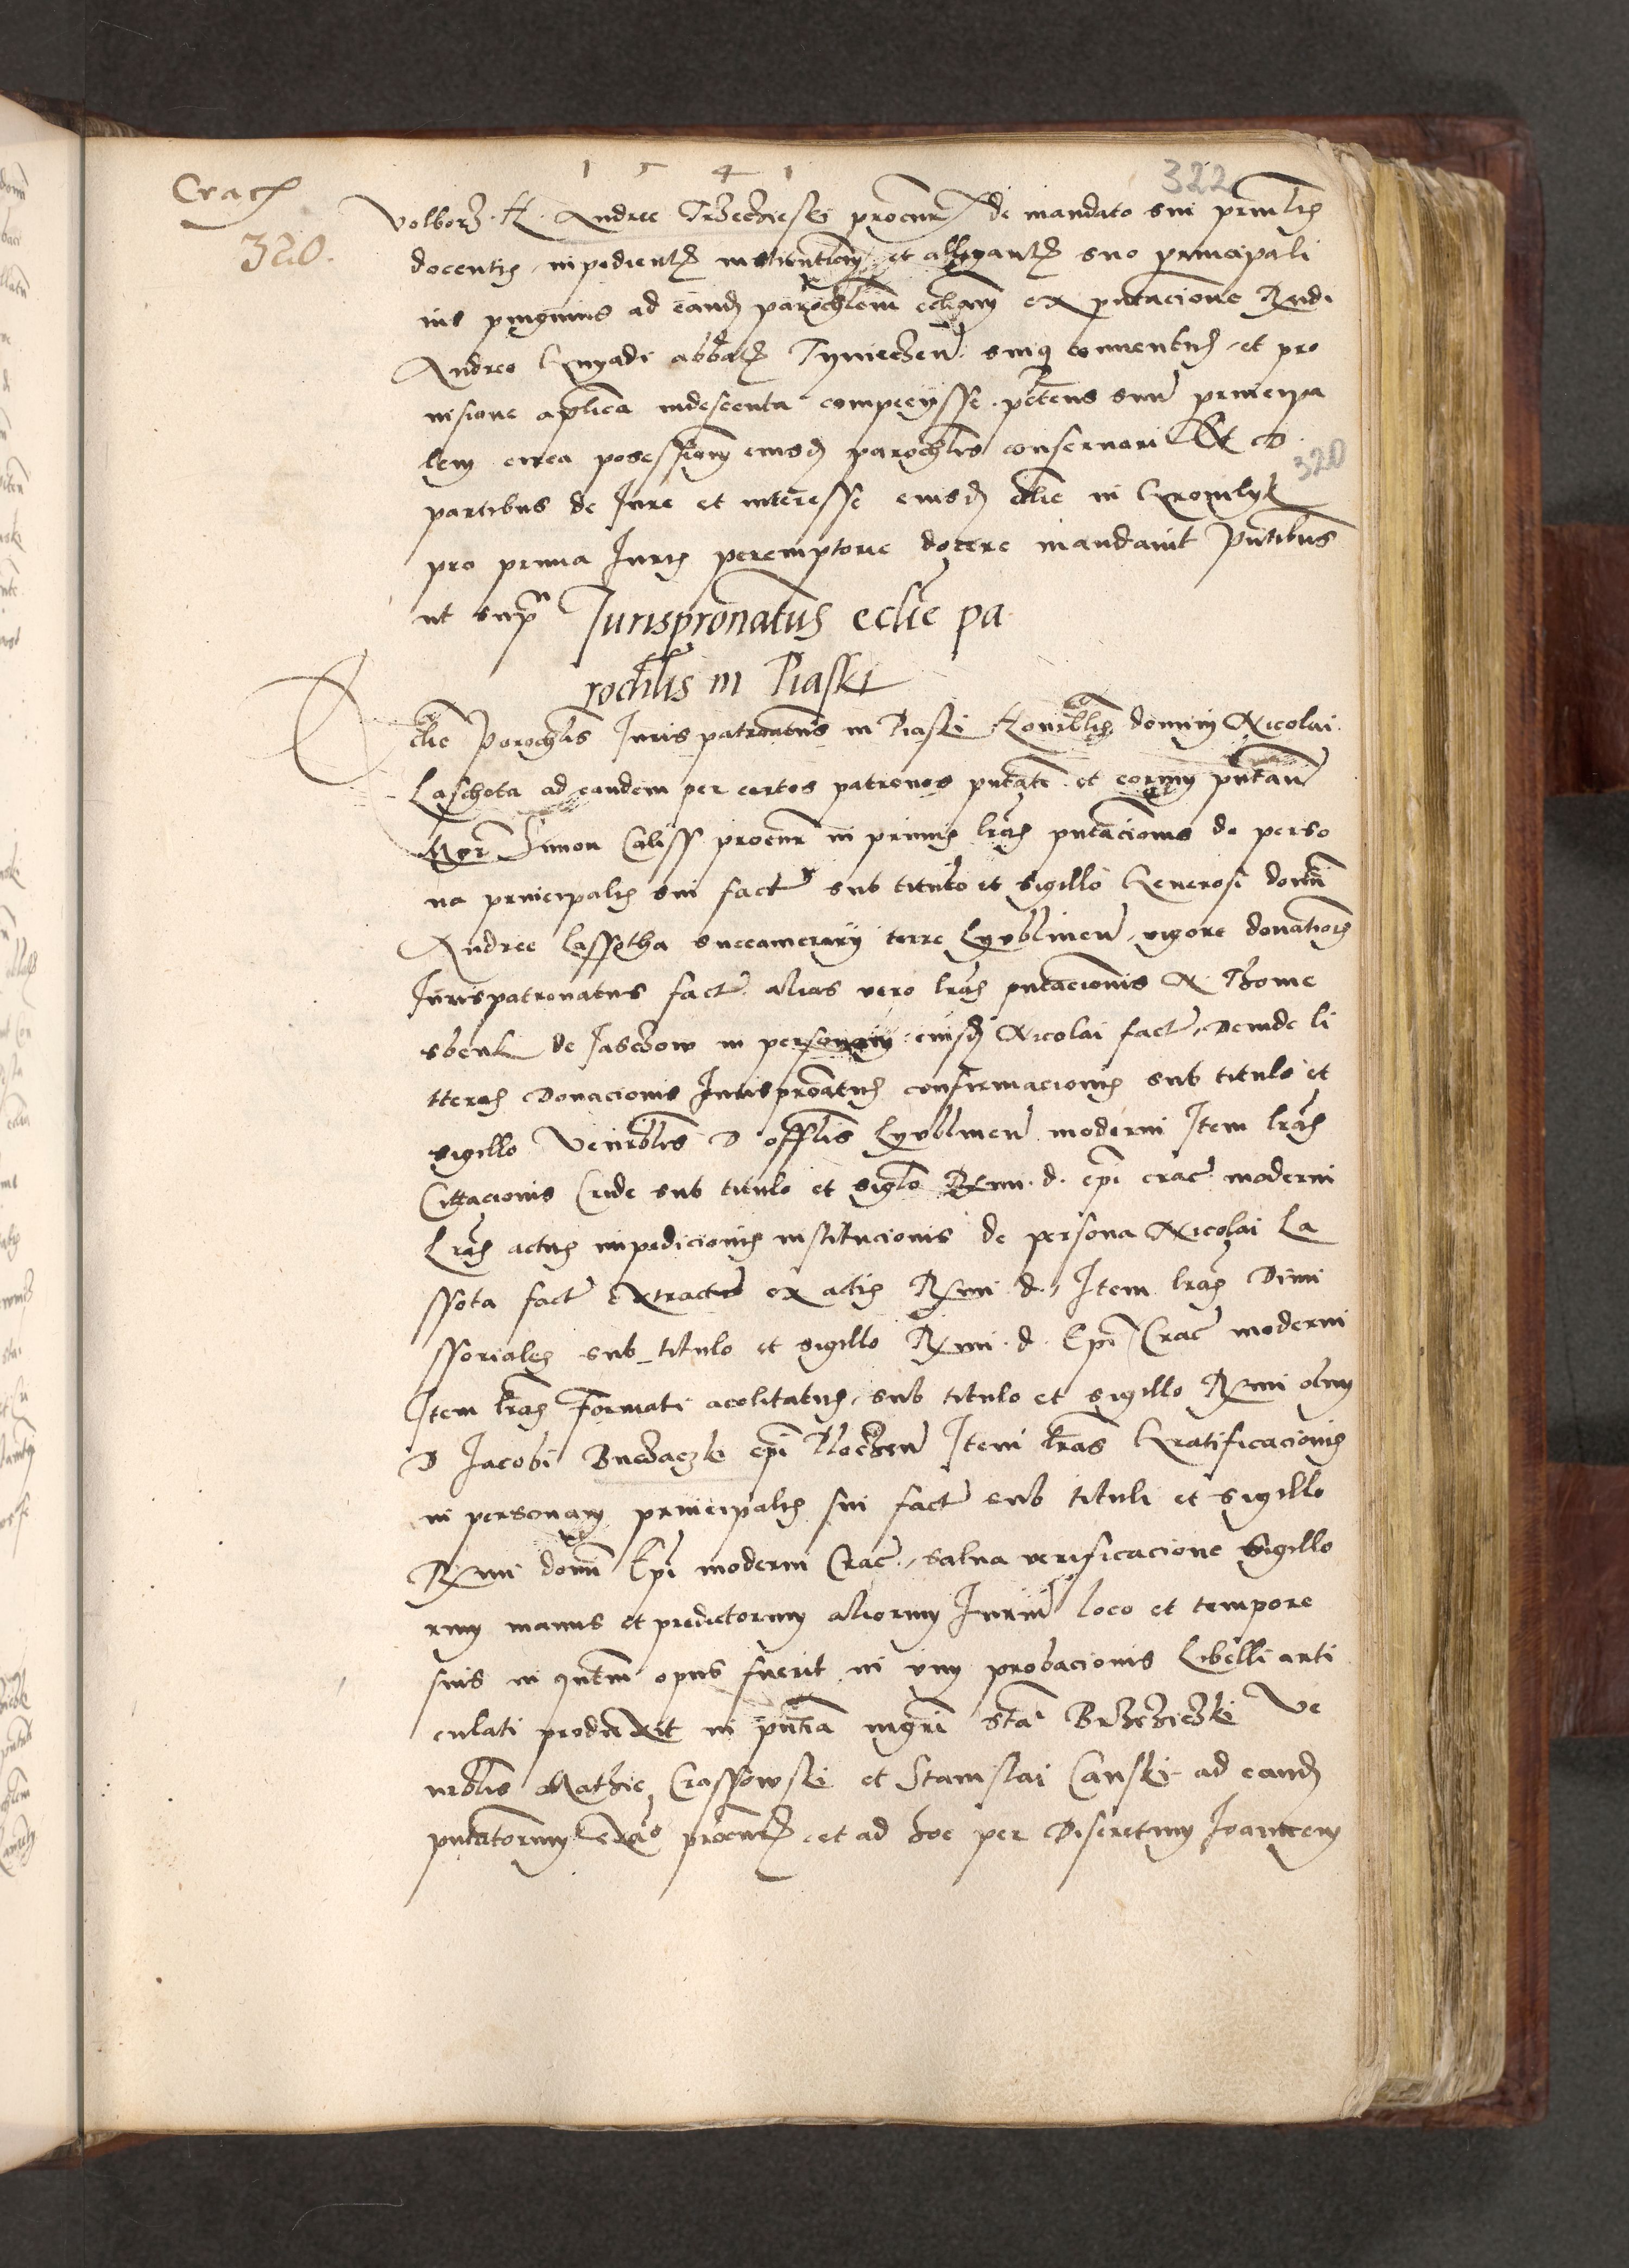 1541
322
Crac
320.
Volborz H Andree Trzeczieski procur de mandato sui prinlis
docentis inpedient institucionem et allegantis suo principali
ius pinguius ad eand parochlem eccliam ex pntacione Rndi
Andree Gnyadi abbatis Tynieczen suiq conuentus et pro
uisione aplica indescenta competysse petens suum principa
lem circa possessionem eiusd parochlis conseruari Et D
320
partibus de Jure et interesse eiusd eclie in Gromlyk
pro prima Juris peremptorie docere mandauit Pntibus
ut supra Jurispronatus eclie pa
rochlis in Piaski
Eclie Parochlis Jurispatronatus in Piaski Honorblis domini Nicolai
Laschota ad eandem per certos patronos pntate et eorum pntan
Mgr Simon Caliss procur in primis lras pntacionis de perso
na principalis sui fact sub titulo et sigillo Generosi domini
Andree Lassotha succamerarij terre Lyublinen vigore donationis
Jurispatronatus fact alias vero lras pntacionis N Thome
de Jaschow in personam eiusd Nicolai fact Deinde li
tteras Donacionis Jurispronatus confirmacionis sub titulo et
sigillo Venerblis D offlis Lyublinen moderni Item lras
Cittacionis Cride sub titulo et siglo Rmi d epi crac moderni
Lras actus inpedicionis institucionis de persona Nicolai La
ssota fact extractas ex actis Rmi d Item lras Dimi
ssoriales sub titulo et sigillo Rmi d Epi Crac moderni
Item lras formati acolitatus sub titulo et sigillo Rmi olim
D Jacobi Buczaczki epi Ploczen Item lras Gratificacionis
in personam principalis sui fact sub tituli et sigillo
Rmi domi Epi moderni Crac salua verificacione Sigillo
rum manus et predictorum aliorum Jurium loco et tempore
suis in qntum opus fuerit in vim probacionis Libelli arti
culati produxit in pntia mgri Sta Brzezieczki Ve
nerblis Mathie Crassowski et Stanislai Canski ad eand
pntatorum procur et ad hoc per Discretum Joannem